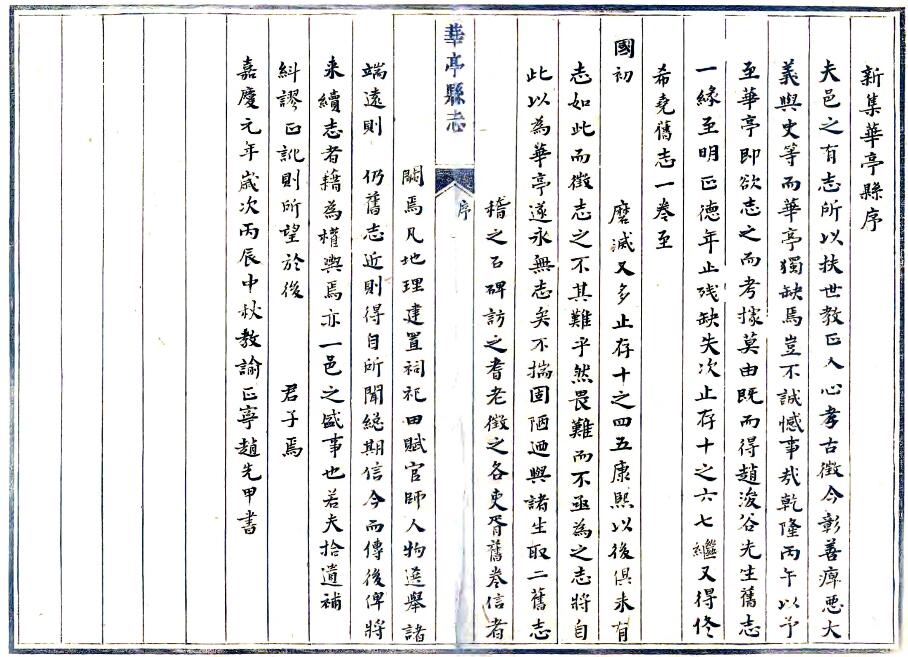 新集華亭縣序
夫邑之有志所以扶世教正人心考古徵今彰善癉惡大
義與史等而華亭獨缺焉豈不誠憾事哉乾隆丙午以予
至華亭即欲志之而考據莫由既而得趙浚谷先生舊志
一緣至明正德年止殘缺失次止存十之六七繼又得佟
希堯舊志一卷至
國初 磨滅又多止存十之四五康熙以後俱未有
志如此而徵志之不其難乎然畏難而不亟為之志將自
此以為華亭遂永無志矣不揣固陋迺與諸生取二舊志
稽之石碑訪之耆老徵之各吏胥舊卷信者
華亭縣志
序
闕焉凡地理建置祠祀田賦官師人物選舉諸
端遠則 仍舊志近則得自所聞總期信今而傳後俾將
来續志者藉為權輿焉亦一邑之盛事也若夫拾遺補
糾謬正訛則所望於後 君子焉
嘉慶元年歲次丙辰中秋教諭正寧趙先甲書